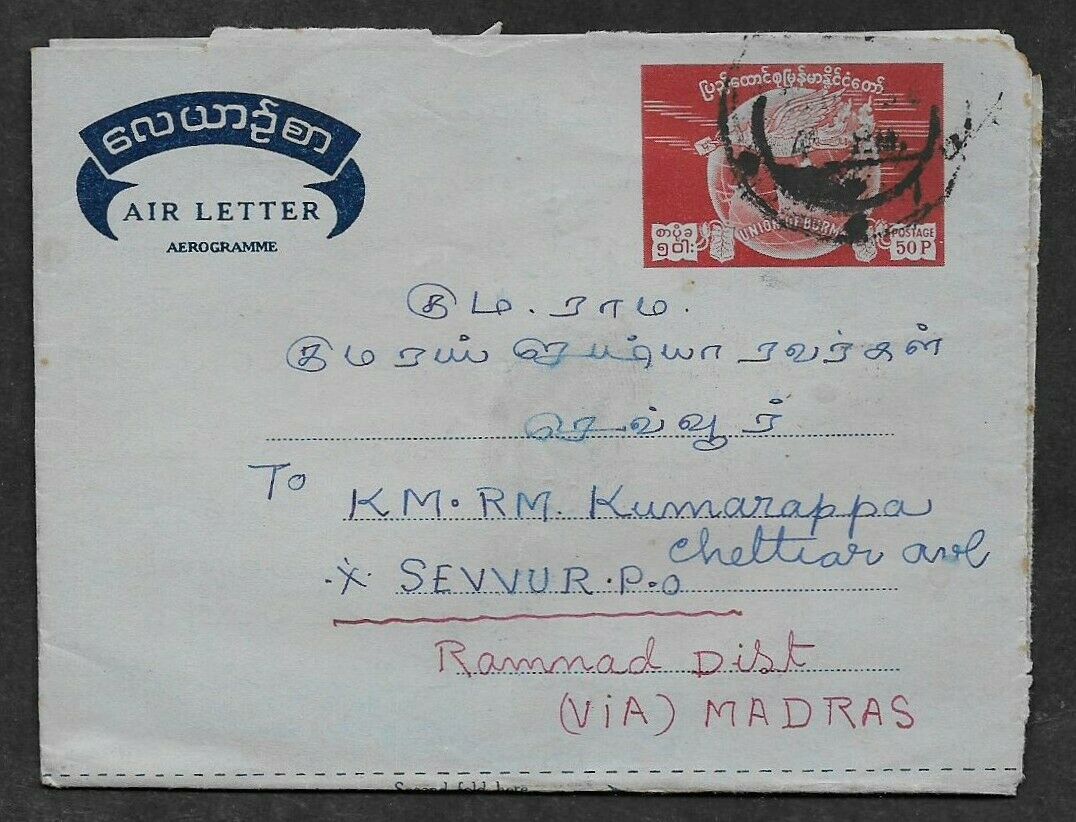 လေယာဉ်စာ
AIR LETTER
AEROGRAMME
ပြည်ထောင်စုမြန်မာနိုင်ငံတော်
UNION OF BURMA
စာပို့ခ
၅၀ါး
POSTAGE
50 P
கும. ராம.
குமரப்ப செட்டியாரவர்கள்
செவ்வூர்
To
KM. RM. Kumarappa
Chettiar avl
.X. SEVVUR. P.O
Ramnad Dist
(ViA) MADRAS
Second fold here